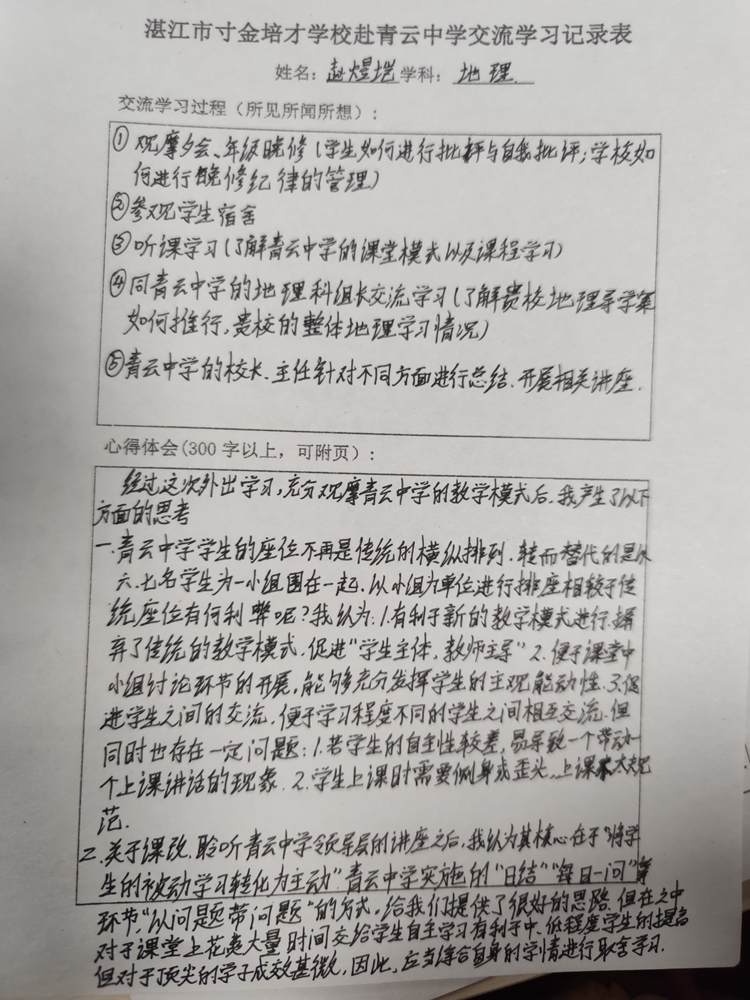 湛江市寸金培才学校赴青云中学交流学习记录表
姓名：赵煜垲学科：地理
交流学习过程（所见所闻所想）：
①观摩夕会、年级晚修（学生如何进行批评与自我批评；学校如
何进行晚修纪律的管理）
②参观学生宿舍
③听课学习（了解青云中学的课堂模式以及课程学习）
④同青云中学的地理科组长交流学习（了解贵校地理导学案
如何推行、贵校的整体地理学习情况）
⑤青云中学的校长、主任针对不同方面进行总结、开展相关讲座.
心得体会(300字以上，可附页）：
经过这次外出学习,充分观摩青云中学的教学模式后,我产生了以下
方面的思考
一.青云中学学生的座位不再是传统的横纵排列.转而替代的是以
六、七名学生为一小组围在一起.以小组为单位进行排座相较于传
统座位有何利弊呢?我认为:1.有利于新的教学模式进行.摒
弃了传统的教学模式.促进"学生主体.教师主导"2.便于课堂中
小组讨论环节的开展,能够充分发挥学生的主观能动性.3.促
进学生之间的交流.便于学习程度不同的学生之间相互交流.但
同时也存在一定问题:1.若学生的自主性较差,易导致一个带动一
个上课讲话的现象.2.学生上课时需要侧身或歪头,上课不太规
范.
二.关于课改.聆听青云中学领导层的讲座之后,我认为其核心在于"将学
生的被动学习转化为主动"青云中学实施的"日结""每日一问"等
环节."以问题带问题"的方式,给我们提供了很好的思路.但在之中
对于课堂上花费大量时间交给学生自主学习有利于中、低程度学生的提高
但对于顶尖的学子成效甚微,因此,应当综合自身的学情进行取舍学习.